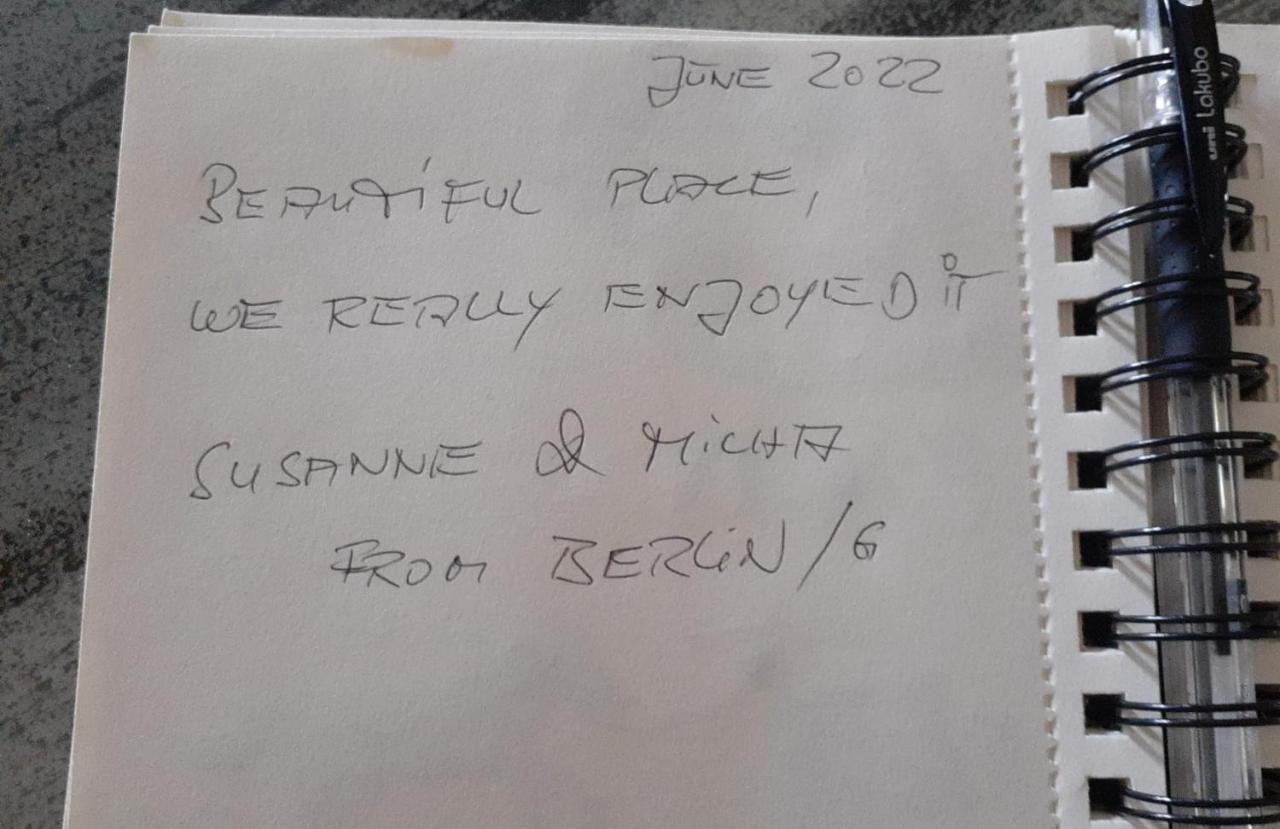 JUNE 2022
BEAUTIFUL PLACE,
WE REALLY ENJOYED IT
SUSANNE & MICHA
FROM BERLIN / G
uni Lakubo